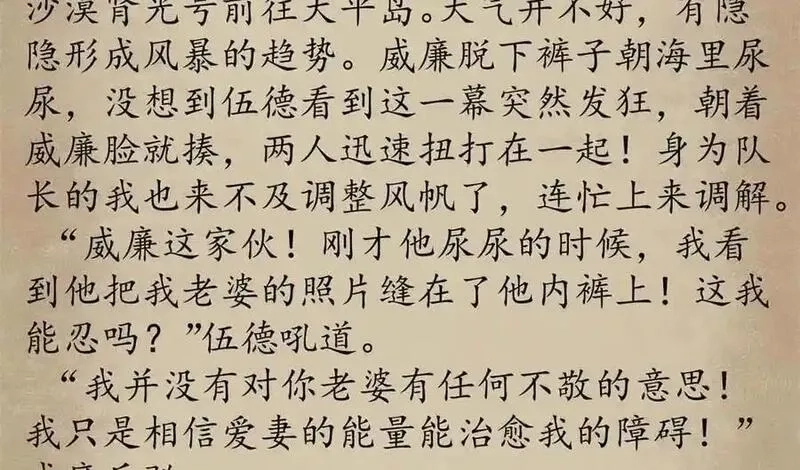 沙漠胥光号前往大平岛。天气并不好，有隐
隐形成风暴的趋势。威廉脱下裤子朝海里尿
尿，没想到伍德看到这一幕突然发狂，朝着
威廉脸就揍，两人迅速扭打在一起！身为队
长的我也来不及调整风帆了，连忙上来调解。
“威廉这家伙！刚才他尿尿的时候，我看
到他把我老婆的照片缝在了他内裤上！这我
能忍吗？”伍德吼道。
“我并没有对你老婆有任何不敬的意思！
我只是相信爱妻的能量能治愈我的障碍！”